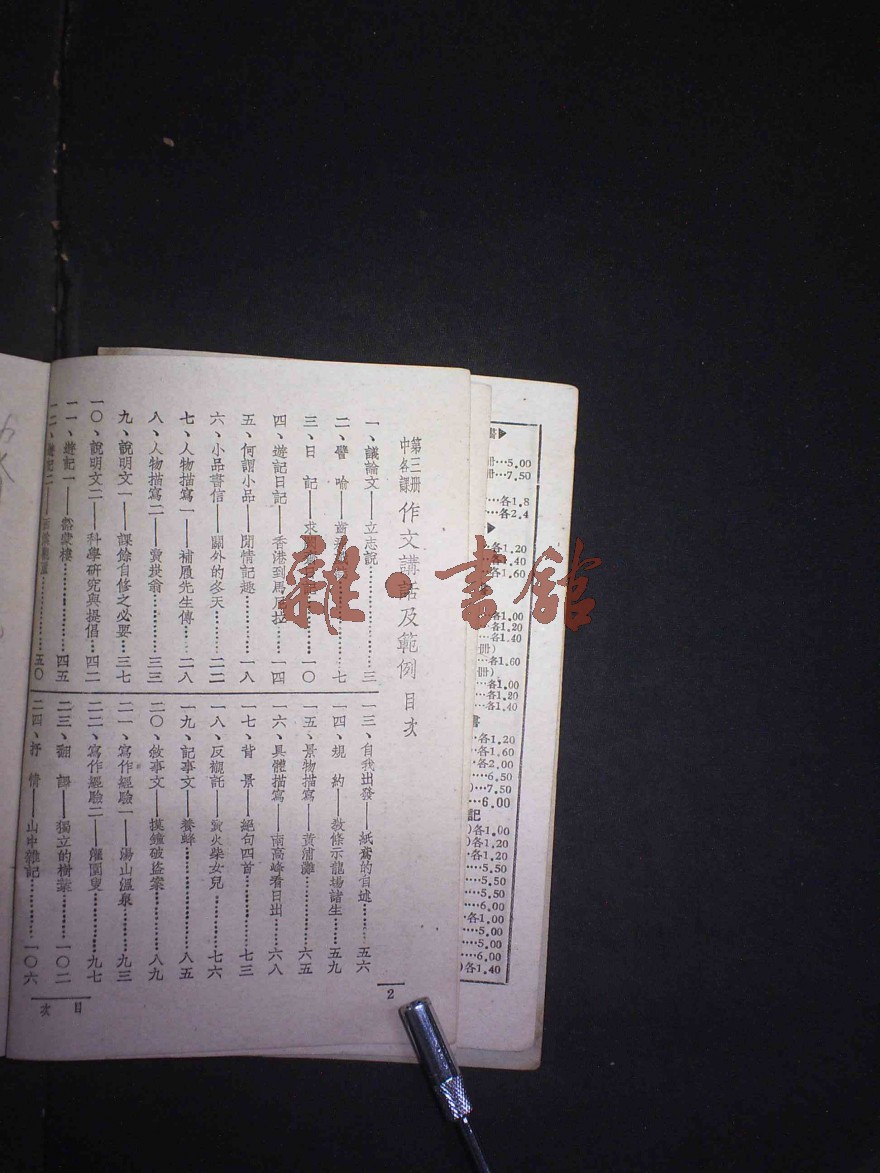 第三册
中各課
作文講話及範例 目次
一、議論文——立志說…………三
二、譬 喻——…………七
三、日 記——求…………一〇
四、遊記日記——香港到馬尼拉……一四
五、何謂小品——閒情記趣……一八
六、小品書信——關外的冬天……二二
七、人物描寫一——補履先生傳……二八
八、人物描寫二——賣炭翁……三三
九、說明文一——課餘自修之必要…三七
一〇、說明文二——科學研究與提倡…四二
一一、遊記一——豁蒙樓…………四五
一二、遊記二——…………五〇
一三、自我出發——紙鳶的自述……五六
一四、規 約——教條示龍場諸生…五九
一五、景物描寫——黃浦灘……六五
一六、具體描寫——南高峰看日出……六八
一七、背 景——絕句四首……七三
一八、反襯託——賣火柴女兒……七六
一九、記事文——養蜂…………八五
二〇、敘事文——摸鐘破盜案……八九
二一、寫作經驗一——湯山溫泉……九三
二二、寫作經驗二——灌園叟……九七
二三、翻 譯——獨立的樹葉……一〇二
二四、抒 情——山中雜記…………一〇六
2
目 次
雜·書館
書▶
冊…5.00
冊…7.50
…各1.8
…各2.4
各1.20
各1.60
各1.00
各1.20
各1.40
冊)
…各1.60
冊)
…各1.00
…各1.20
…各1.40
書
各1.20
各1.60
…各2.00
…6.50
)…7.50
…6.00
記
)各1.00
)各1.20
…各1.20
…5.50
…5.50
…5.50
…6.00
…各1.00
…5.00
…5.00
…6.00
)各1.40